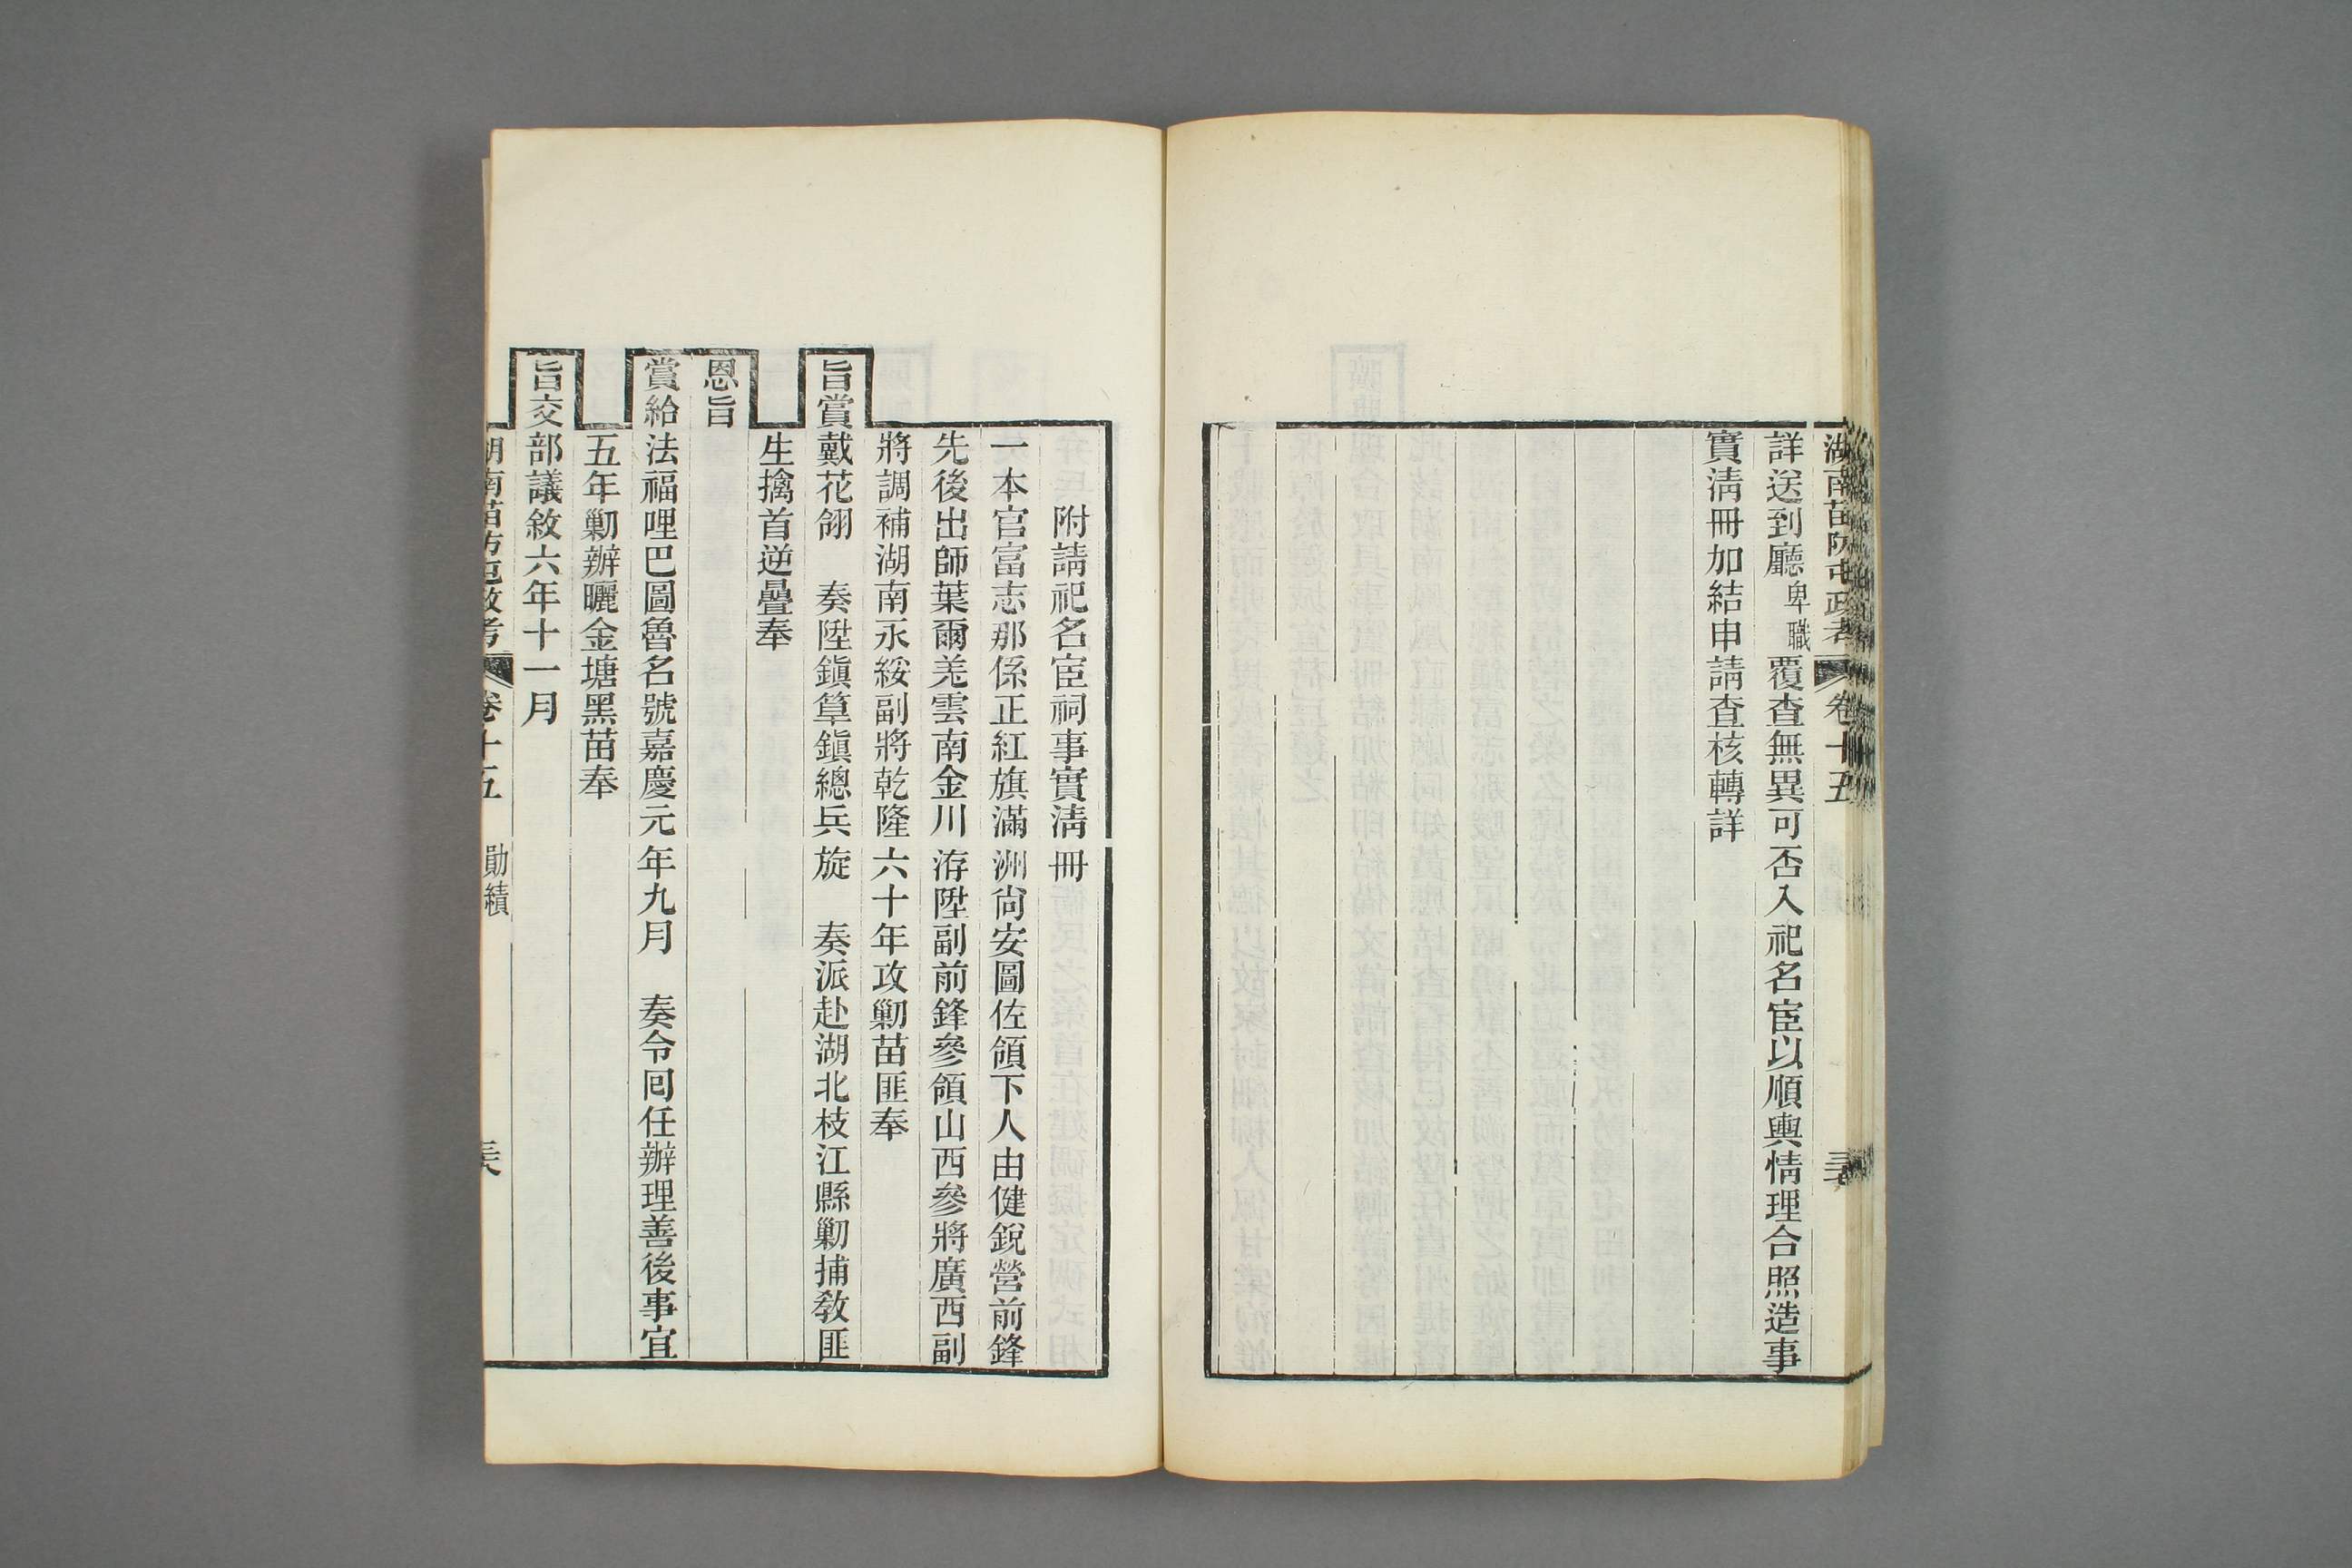 湖南苗防屯政考 卷十五
詳送到廳卑職覆查無異可否入祀名宦以順輿情理合照造事
實淸冊加結申請查核轉詳
附請祀名宦祠事實淸冊
一本官富志那係正紅旗滿洲尙安圖佐領下人由健銳營前鋒
先後出師葉爾羌雲南金川洊陞副前鋒參領山西參將廣西副
將調補湖南永綏副將乾隆六十年攻勦苗匪奉
旨賞戴花翎 奏陞鎭筸鎭總兵旋 奏派赴湖北枝江縣勦捕敎匪
生擒首逆聶 奉
恩旨
賞給法福哩巴圖魯名號嘉慶元年九月 奏令囘任辦理善後事宜
五年勦辦曬金塘黑苗奉
旨交部議敘六年十一月
湖南苗防屯政考 卷十五 勛績 三六